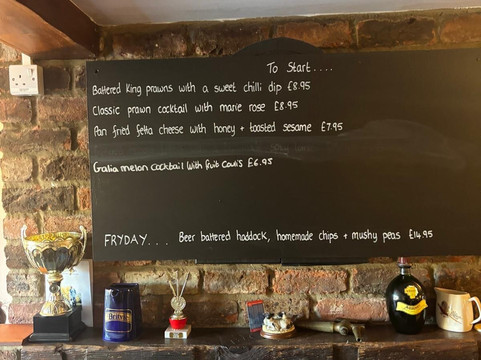 To Start....
Battered King prawns with a sweet chilli dip £8.95
Classic prawn cocktail with marie rose £8.95
Pan fried fetta cheese with honey + toasted sesame £7.95
Galia melon cocktail with fruit coulis £6.95
FRYDAY... Beer battered haddock, homemade chips + mushy peas £14.95